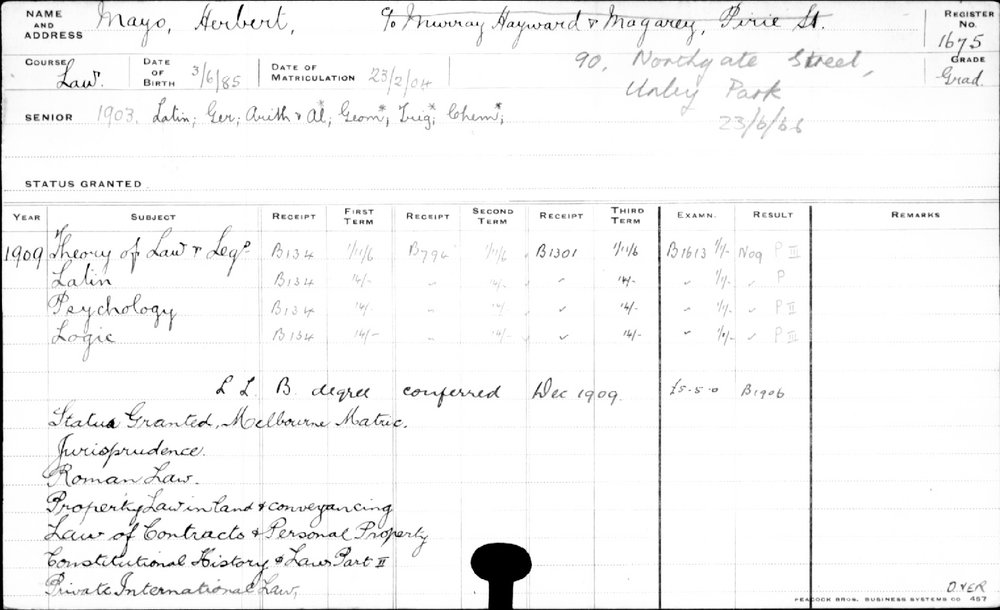 NAME AND ADDRESS Mayo, Herbert, c/o Murray Hayward & Magarey, Pirie St. REGISTER No. 1675
COURSE Law. DATE OF BIRTH 3/6/85 DATE OF MATRICULATION 23/2/04 90, Northgate Street, GRADE Grad.
Unley Park
SENIOR 1903. Latin; Ger; Arith & Al*; Geom*; Trig*; Chem*;
23/6/66
STATUS GRANTED
YEAR SUBJECT RECEIPT FIRST TERM RECEIPT SECOND TERM RECEIPT THIRD TERM EXAMN. RESULT REMARKS
1909 Theory of Law & Legn B134 1/11/6 B794 1/11/6 B1301 1/11/6 B1613 1/1/- Nog P II
Latin B134 14/- " 14/- " 14/- " 1/1/- " P
Psychology B134 14/- " 14/- " 14/- " 1/1/- " P II
Logic B134 14/- " 14/- " 14/- " 1/1/- " P II
L L. B. degree conferred Dec 1909. £5-5-0 B1906
Status Granted, Melbourne Matric.
Jurisprudence.
Roman Law.
Property Law in Land & conveyancing
Law of Contracts & Personal Property
Constitutional History & Law Part II
Private International Law,
OVER
PEACOCK BROS. BUSINESS SYSTEMS CO 457